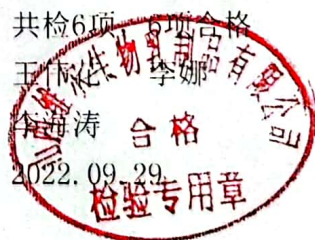 共检6项 6项合格
王伟花 李娜
李海涛
2022.09.29
生物乳制品有限公司
合格
检验专用章